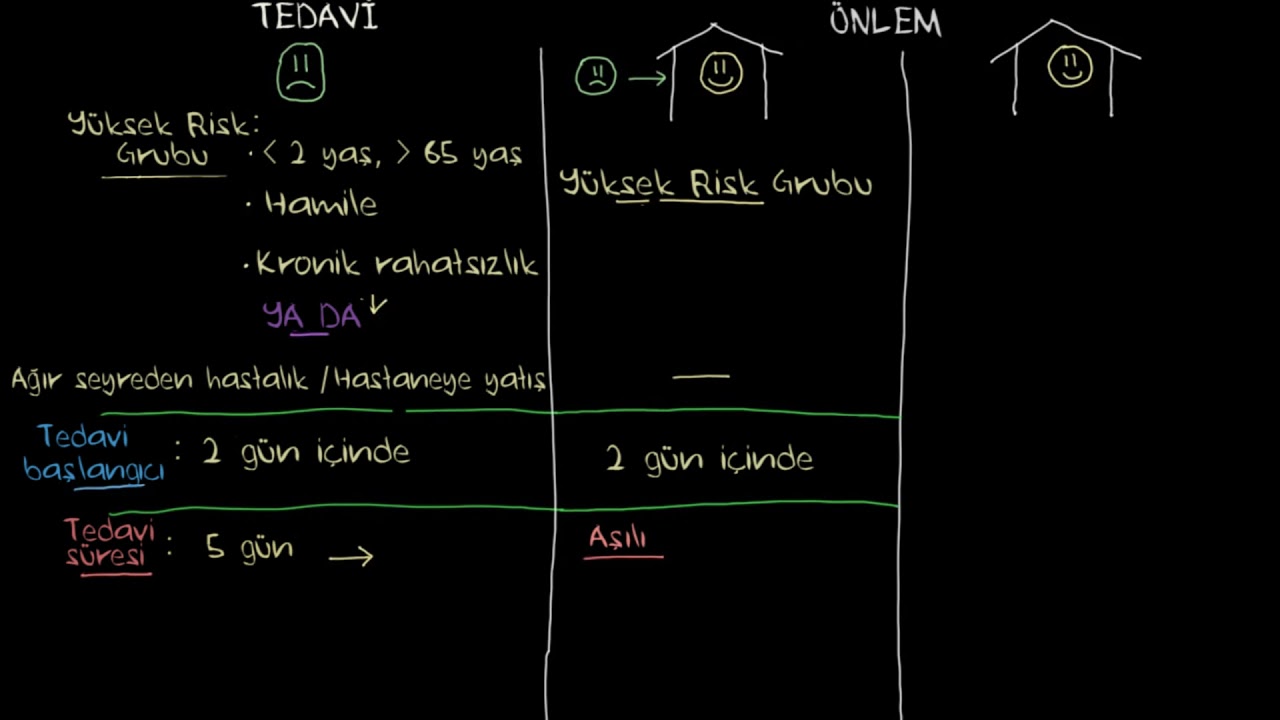 TEDAVİ
ÖNLEM
Yüksek Risk:
Grubu
· < 2 yaş, > 65 yaş
· Hamile
· Kronik rahatsızlık
YA DA
Ağır seyreden hastalık / Hastaneye yatış
Yüksek Risk Grubu
Tedavi
başlangıcı : 2 gün içinde
2 gün içinde
Tedavi
süresi : 5 gün →
Aşılı